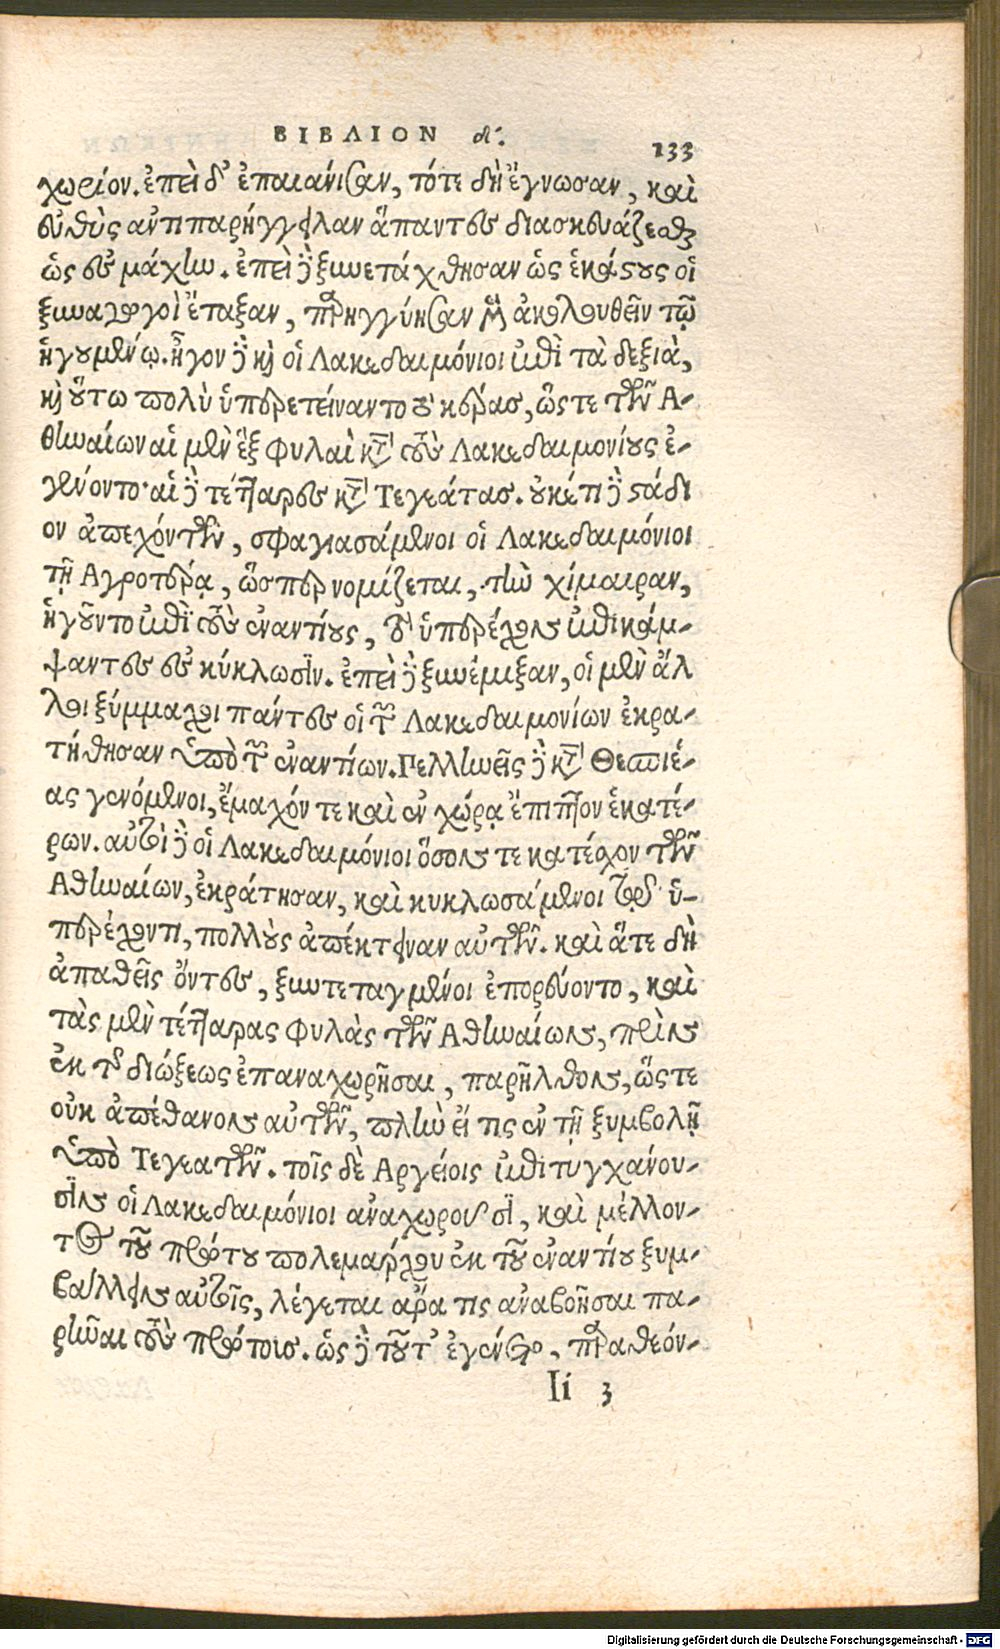 ΒΙΒΛΙΟΝ δ'.
133
χωρίον. ἐπεὶ δ' ἐπαιάνισαν, τότε δὴ ἔγνωσαν, καὶ
εὐθὺς ἀντιπαρήγγειλαν ἅπαντες διασκευάζεσθαι
ὡς ἐς μάχην. ἐπεὶ δὲ ξυνετάχθησαν ὡς ἑκάστους οἱ
ξυναγωγοὶ ἔταξαν, παρηγγύησαν μὲν ἀκολουθεῖν τῷ
ἡγουμένῳ. ἦγον δὲ καὶ οἱ Λακεδαιμόνιοι ἐπὶ τὰ δεξιὰ,
καὶ οὕτω πολὺ ὑπερετείναντο τὸ κέρας, ὥστε τῶν Α-
θηναίων αἱ μὲν ἓξ φυλαὶ κατὰ τοὺς Λακεδαιμονίους ἐ-
γένοντο· αἱ δὲ τέτταρες κατὰ Τεγεάτας. οὐκέτι δὲ στάδι
ον ἀπεχόντων, σφαγιασάμενοι οἱ Λακεδαιμόνιοι
τῇ Αγροτέρᾳ, ὥσπερ νομίζεται, τὴν χίμαιραν,
ἡγοῦντο ἐπὶ τοὺς ἐναντίους, τὸ ὑπερέχον ἐπικάμ-
ψαντες ἐς κύκλωσιν. ἐπεὶ δὲ ξυνέμιξαν, οἱ μὲν ἄλ
λοι ξύμμαχοι πάντες οἱ τῶν Λακεδαιμονίων ἐκρα-
τήθησαν ὑπὸ τῶν ἐναντίων. Πελληνεῖς δὲ κατὰ Θεσπιέ-
ας γενόμενοι, ἐμάχοντό τε καὶ ἐν χώρᾳ ἔπιπτον ἑκατέ-
ρων. αὐτοὶ δὲ οἱ Λακεδαιμόνιοι ὅσον τε κατέσχον τῶν
Αθηναίων, ἐκράτησαν, καὶ κυκλωσάμενοι τῷ ὑ-
περέχοντι, πολλοὺς ἀπέκτειναν αὐτῶν. καὶ ἅτε δὴ
ἀπαθεῖς ὄντες, ξυντεταγμένοι ἐπορεύοντο, καὶ
τὰς μὲν τέτταρας φυλὰς τῶν Αθηναίων, πρὶν
ἐκ τῆς διώξεως ἐπαναχωρῆσαι, παρῆλθον, ὥστε
οὐκ ἀπέθανον αὐτῶν, πλὴν εἴ τις ἐν τῇ ξυμβολῇ
ὑπὸ Τεγεατῶν. τοῖς δὲ Αργείοις ἐπιτυγχάνου-
σιν οἱ Λακεδαιμόνιοι ἀναχωροῦσι, καὶ μέλλον-
τος τοῦ πρώτου πολεμάρχου ἐκ τοῦ ἐναντίου ξυμ-
βάλλειν αὐτοῖς, λέγεται ἄρα τις ἀναβοῆσαι πα-
ρεῖναι τοὺς πρώτους. ὡς δὲ τοῦτ' ἐγένετο, παραθέον-
Ii 3
Digitalisierung gefördert durch die Deutsche Forschungsgemeinschaft - DFG